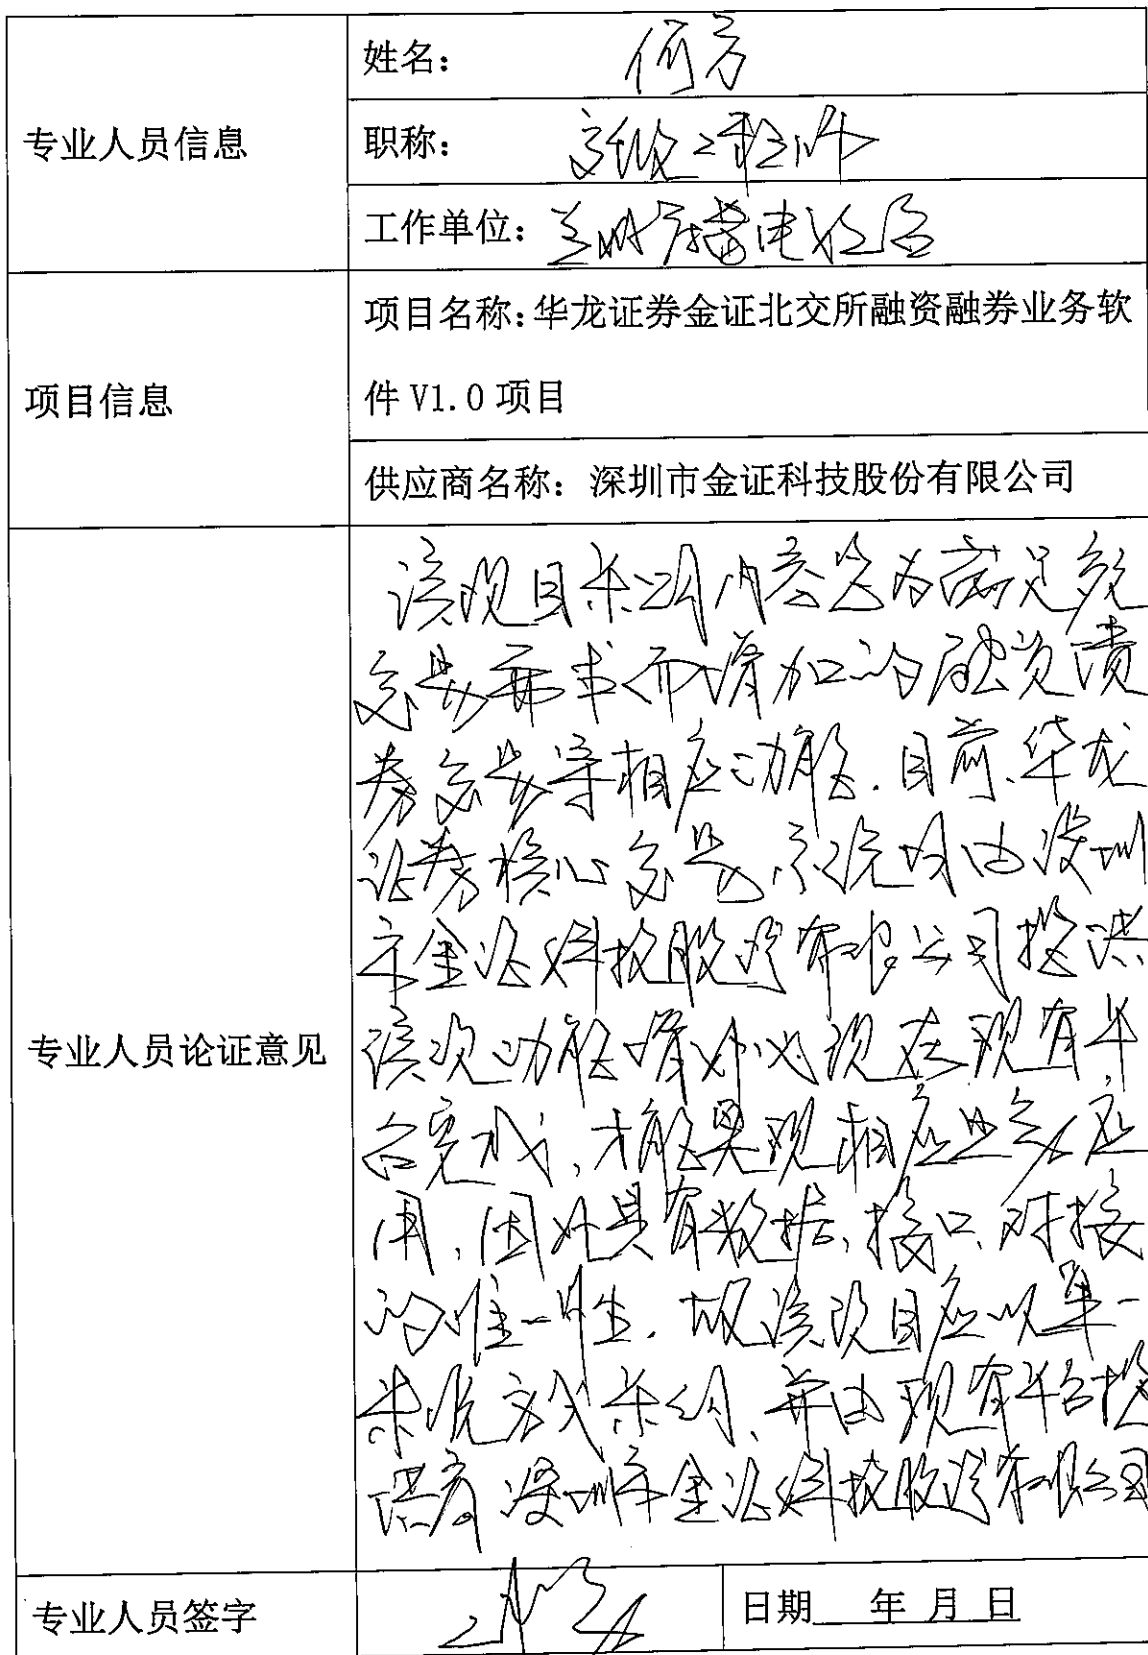 专业人员信息
姓名：何方
职称：高级工程师
工作单位：兰州广播电视台
项目信息
项目名称：华龙证券金证北交所融资融券业务软
件 V1.0 项目
供应商名称：深圳市金证科技股份有限公司
专业人员论证意见
该项目采购内容是为满足
交易需求而增加的融资
券交易等相应功能．目前、华龙
证券核心交易系统均由深圳
市金证科技股份有限公司提供
该次功能增加必须在现有平
台完成，才能实现相应业务应
用，因此具有数据、接口、对接
的唯一性．故该项目应以单一
来源方式采购、并由现有平台提
供商深圳市金证科技股份有限公司
专业人员签字
日期 年 月 日